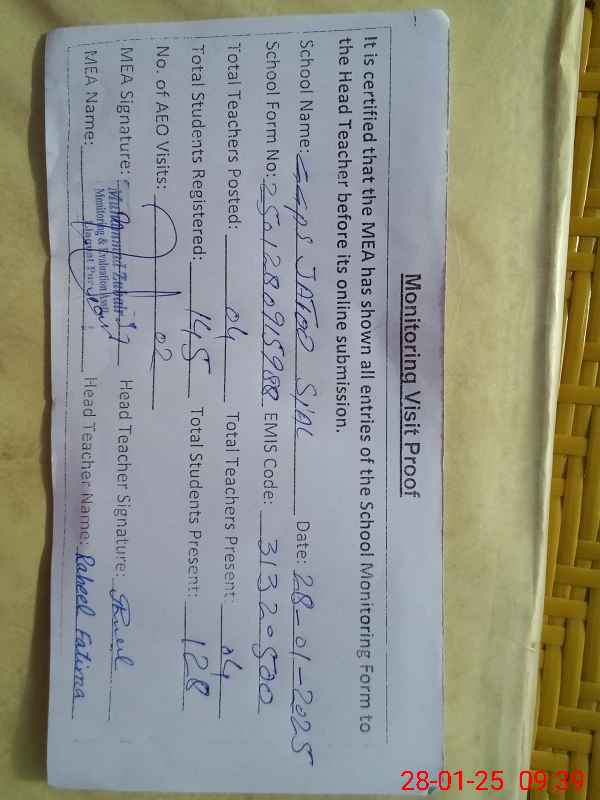 Monitoring Visit Proof
It is certified that the MEA has shown all entries of the School Monitoring Form to
the Head Teacher before its online submission.
School Name: GGPS JATOO SiAL Date: 28-01-2025
School Form No: 250128091598 EMIS Code: 31320500
Total Teachers Posted: 04 Total Teachers Present: 04
Total Students Registered: 145 Total Students Present: 128
No. of AEO Visits: 02
MEA Signature: Head Teacher Signature:
Muhammad Zubair
Monitoring & Evaluation Asstt:
Liaquat Pur
MEA Name: Head Teacher Name: Raheel Fatima
28-01-25 09:39